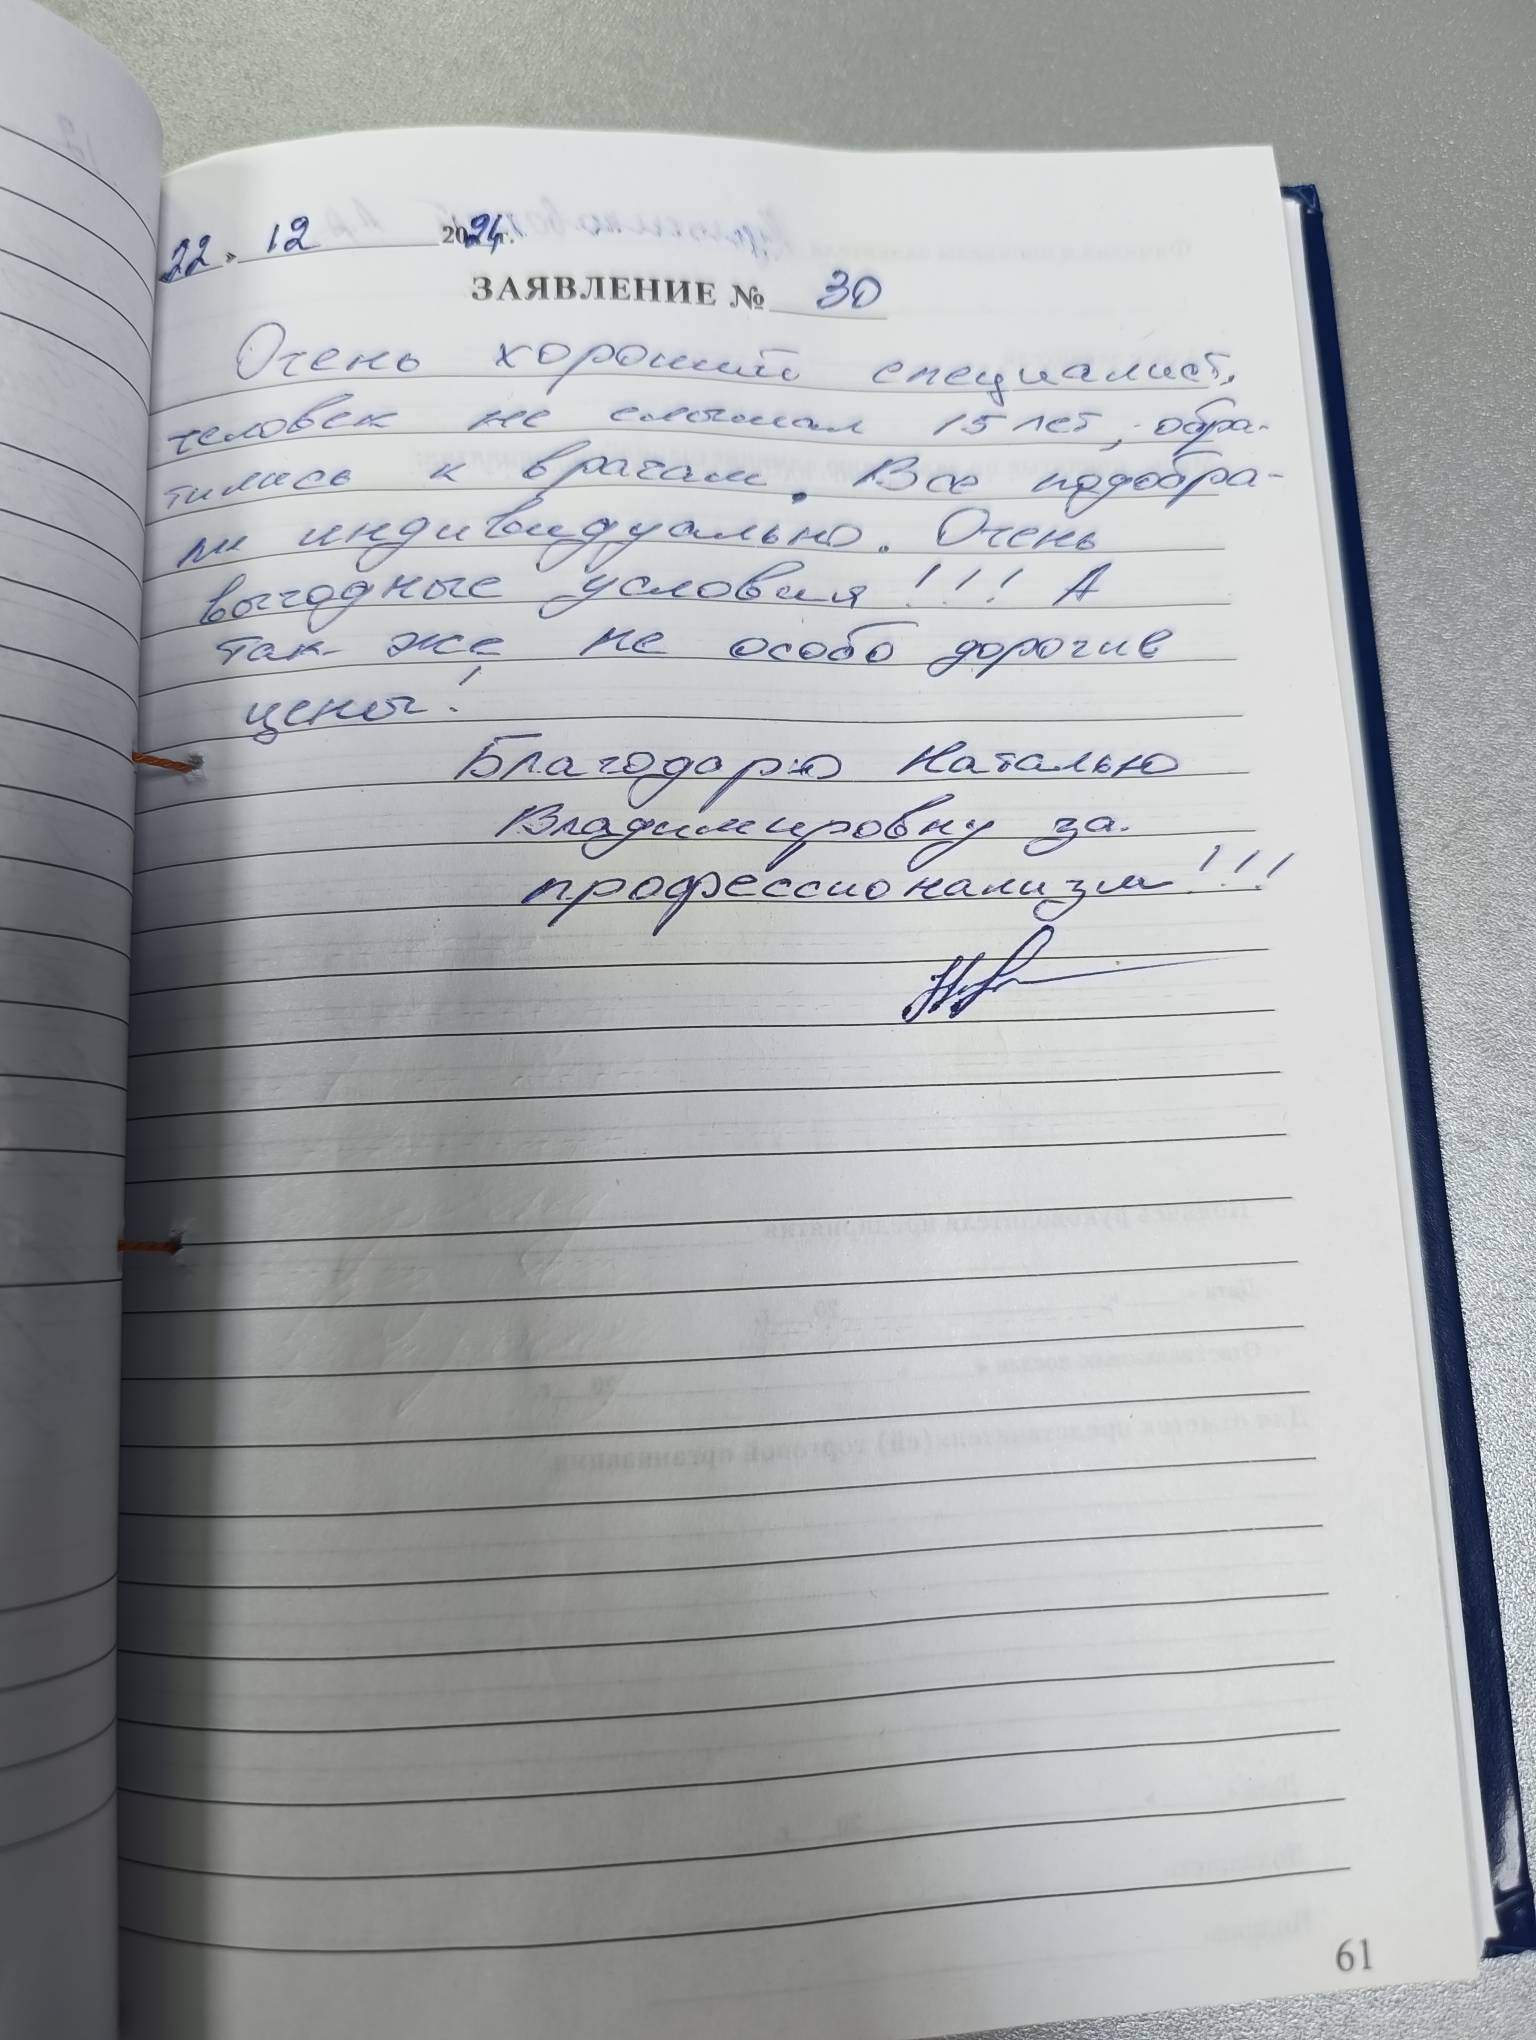 22 » 12 2024 г.
ЗАЯВЛЕНИЕ № 30
Очень хороший специалист,
человек не слышал 15 лет, обра-
тились к врачам. Все подобра-
ли индивидуально. Очень
выгодные условия!!! А
так же не особо дорогие
цены!
Благодарю Наталью
Владимировну за
профессионализм!!!
61